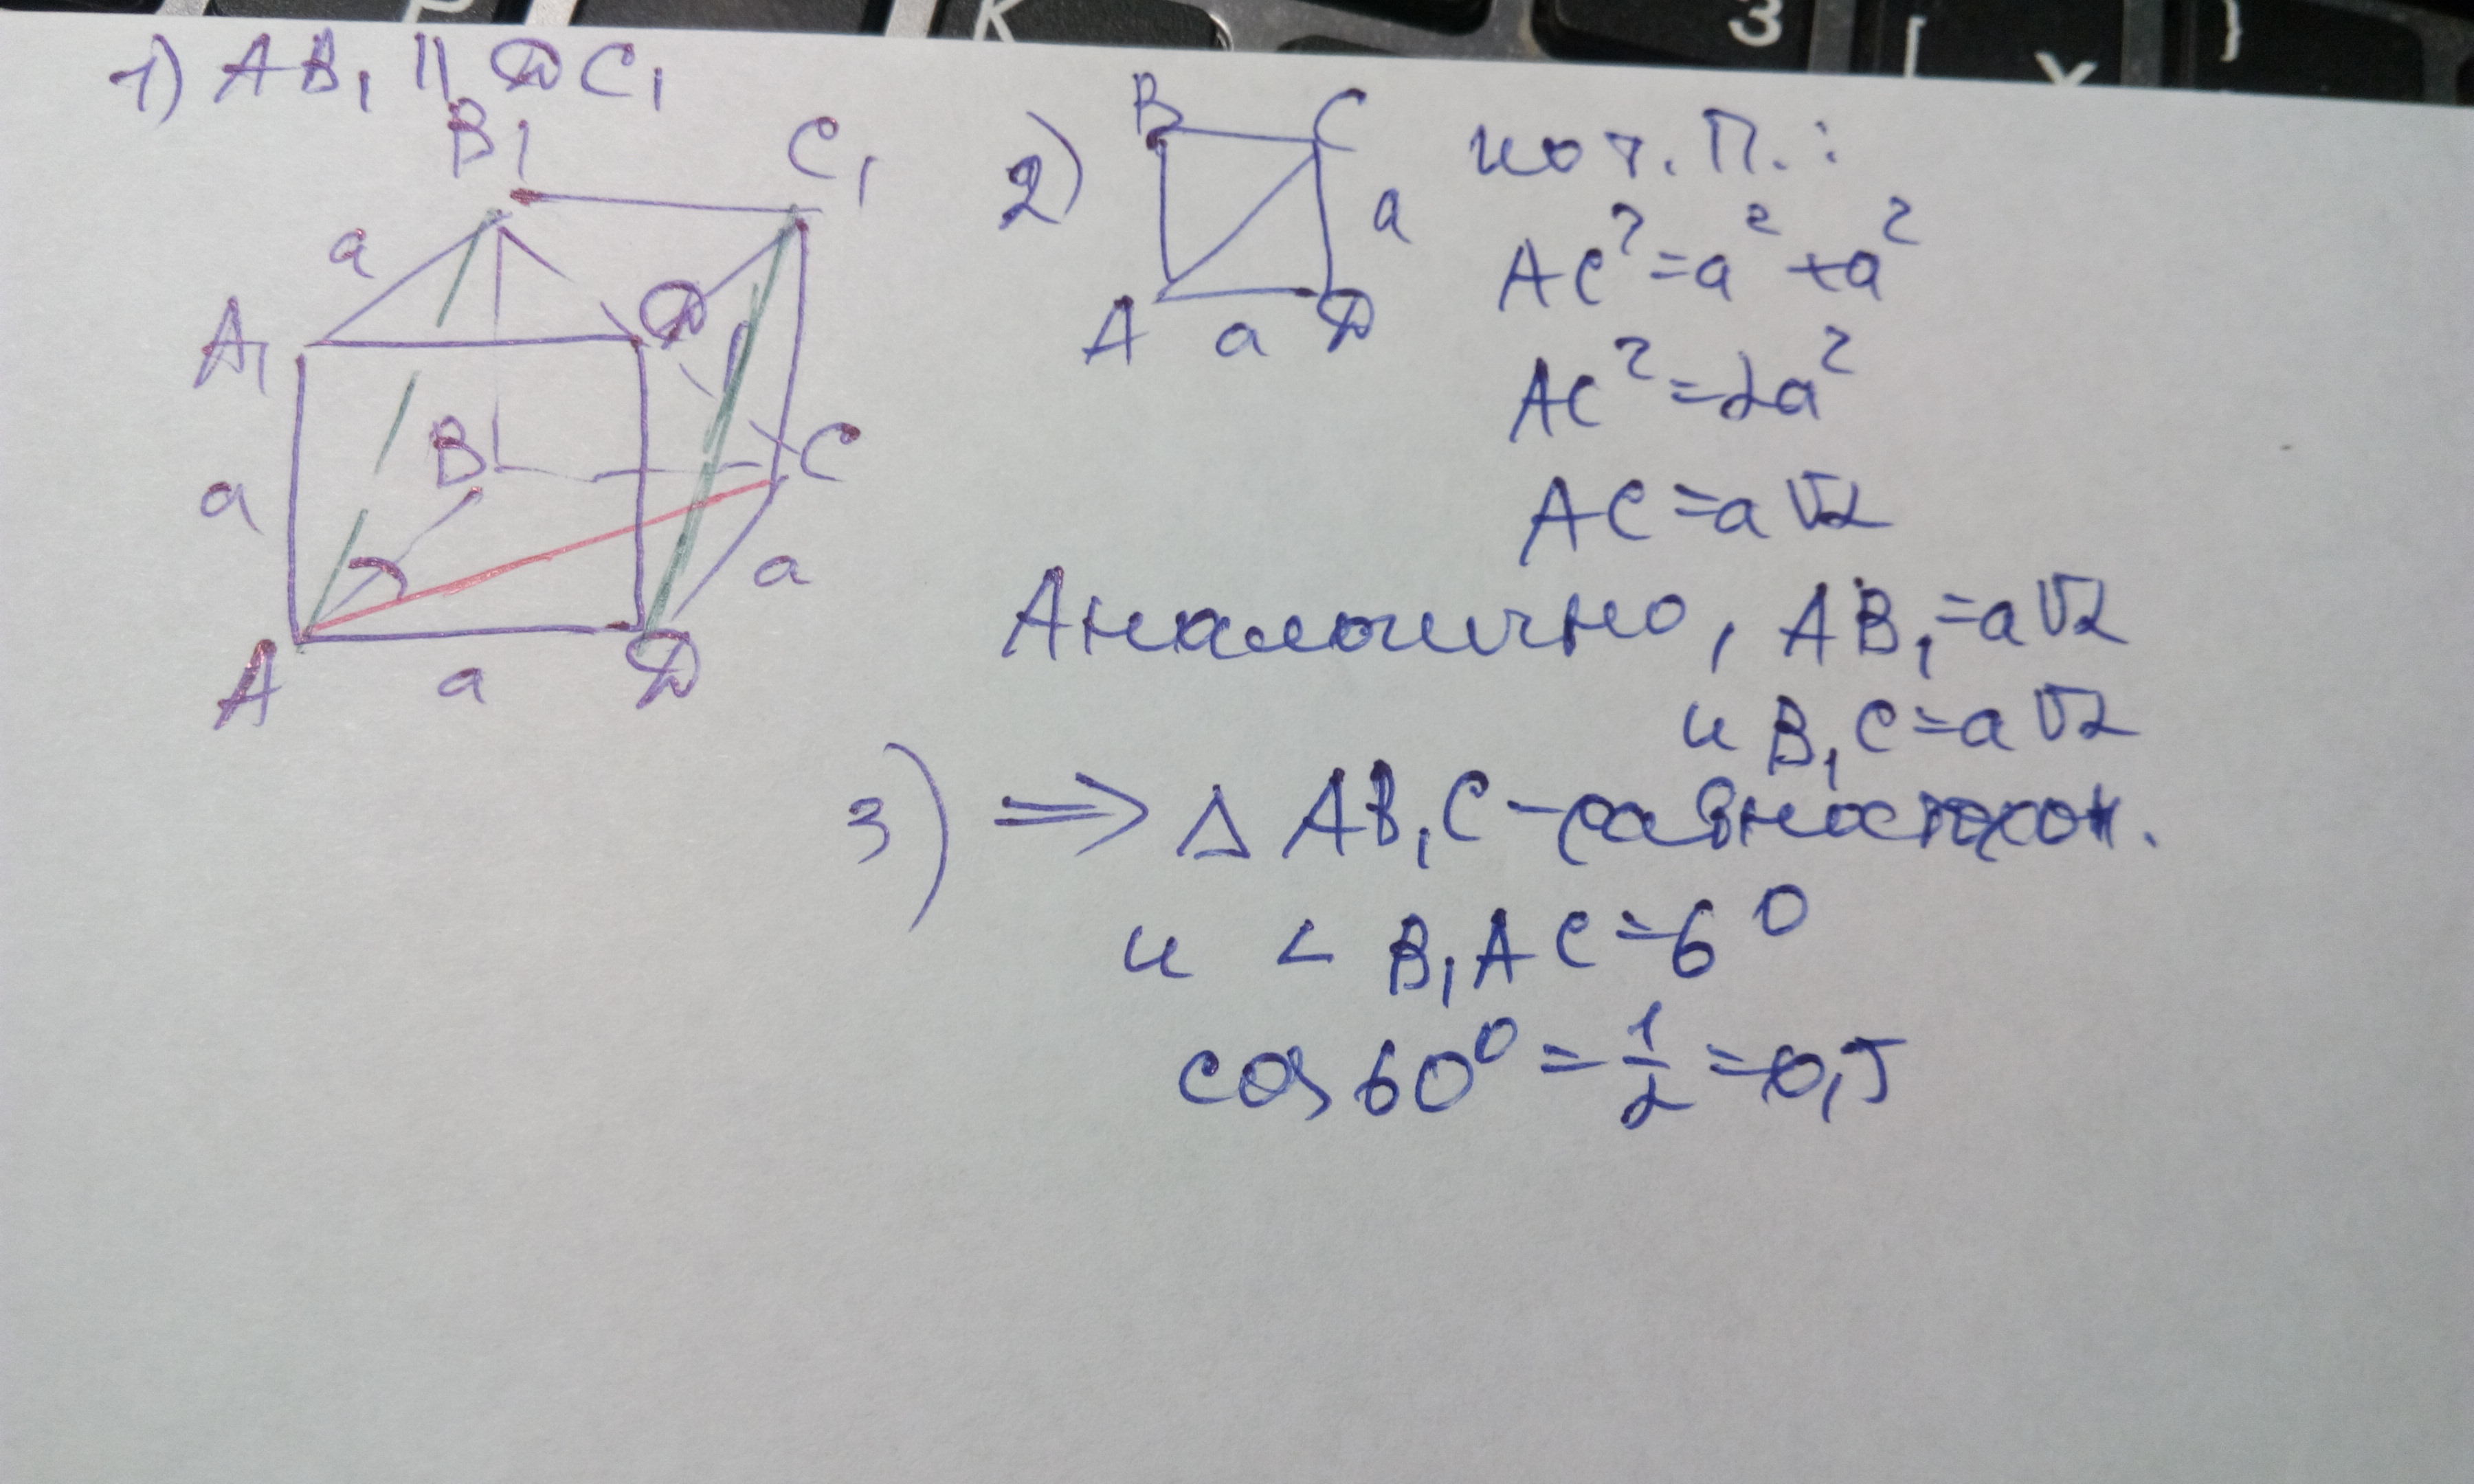 1) AB₁ || DC₁
B₁ C₁
a
A₁ D
a B C
a
A a D
2) B C
a
A a D
по т. П. :
AC² = a² + a²
AC² = 2a²
AC = a√2
Аналогично, AB₁ = a√2
и B₁C = a√2
3) ⇒ Δ AB₁C – равносторон.
и < B₁AC = 6⁰
cos 60⁰ = 1/2 = 0,5
K
3
[
X
}